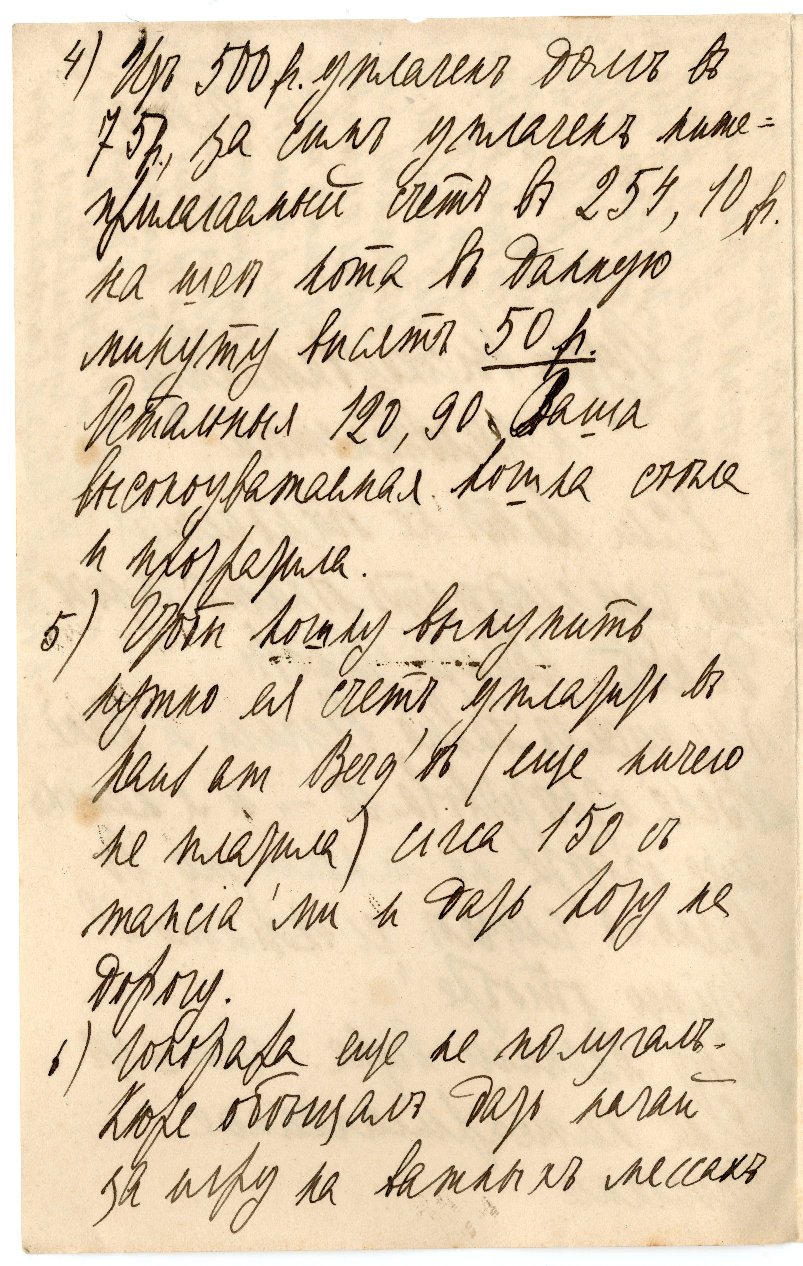 4) Изъ 500 р. уплаченъ долгъ въ
75 р., за симъ уплаченъ ниже=
прилагаемый счетъ въ 254, 10 р.
на шеѣ кота въ данную
минуту висятъ 50 р.
Остальныя 120, 90 Ваша
высокоуважаемая кошка съѣла
и профрафила.
5) Чтобы кошку выкупить
нужно ея счетъ уплафрь въ
Haus am Berg'ѣ (еще ничего
не плафила) circa 150 съ
тансіа'ми и дафь кофу на
дорогу.
6) Гонорафа еще не получалъ.
Кюре обѣщалъ дафь начай
за игру на важныхъ мессахъ